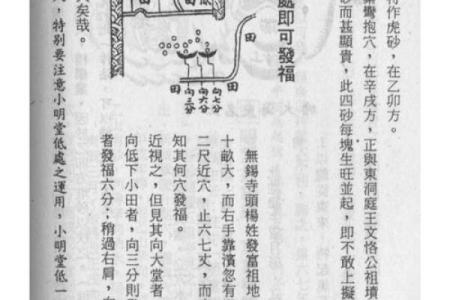 特作虎砂，在乙卯方。
案彎抱穴，在辛戌方，正與東洞庭王文恪公祖墳
砂而甚顯貴，此四砂每塊生旺並起，即不敢上擬
處即可發福
田
田
田
田
向七分
向六分
向三分
無錫寺頭楊姓發富祖地
十畝大，而右手靠濱忽有
二尺近穴，止六七丈，而
知其何穴發福。
近視之，但見其向大堂者
向低下小田者，向三分則
者發福六分；稍過右肩，
矣哉。
，特别要注意小明堂低處之運用，小明堂低一